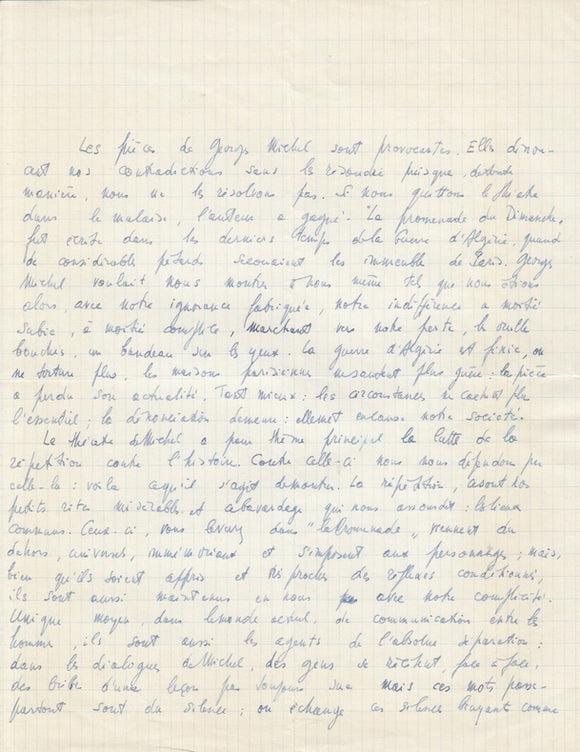 Les pièces de Georges Michel sont provocantes. Elles dénon-
cent nos contradictions sans les résoudre puisque, de toute
manière, nous ne les résolvons pas. Si nous quittons le théâtre
dans le malaise, l'auteur a gagné. "La promenade du Dimanche,
fut écrite dans les derniers temps de la Guerre d'Algérie, quand
de considérables pétards secouaient les immeubles de Paris. Georges
Michel voulait nous montrer à nous même tels que nous étions
alors, avec notre ignorance fabriquée, notre indifférence à moitié
subie, à moitié complice, marchant vers notre perte, les oreilles
bouchées, un bandeau sur les yeux. La guerre d'Algérie est finie, on
ne torture plus, les maisons parisiennes ne sautent plus guère: la pièce
a perdu son actualité. Tant mieux: les circonstances ne cachent plus
l'essentiel; la dénonciation demeure: elle met en cause notre société.
Le théâtre de Michel a pour thème principal la lutte de la
répétition contre l'histoire. Contre celle-ci nous nous défendons par
celle-là: voilà ce qu'il s'agit de montrer. La répétition, ce sont nos
petits rites misérables et ce bavardage qui nous assourdit: les lieux
communs. Ceux-ci, vous le verrez dans "la Promenade" viennent du
dehors, universels, immémoriaux et s'imposent aux personnages; mais,
bien qu'ils soient appris et très proches des réflexes conditionnés,
ils sont aussi maintenus en nous avec notre complicité.
Unique moyen, dans le monde actuel, de communication entre les
hommes, ils sont aussi les agents de l'absolue séparation:
dans les dialogues de Michel, des gens se récitent, face à face,
des bribes d'une leçon pas toujours sue mais ces mots passe-
partout sont du silence; on échange ces silences bruyants comme